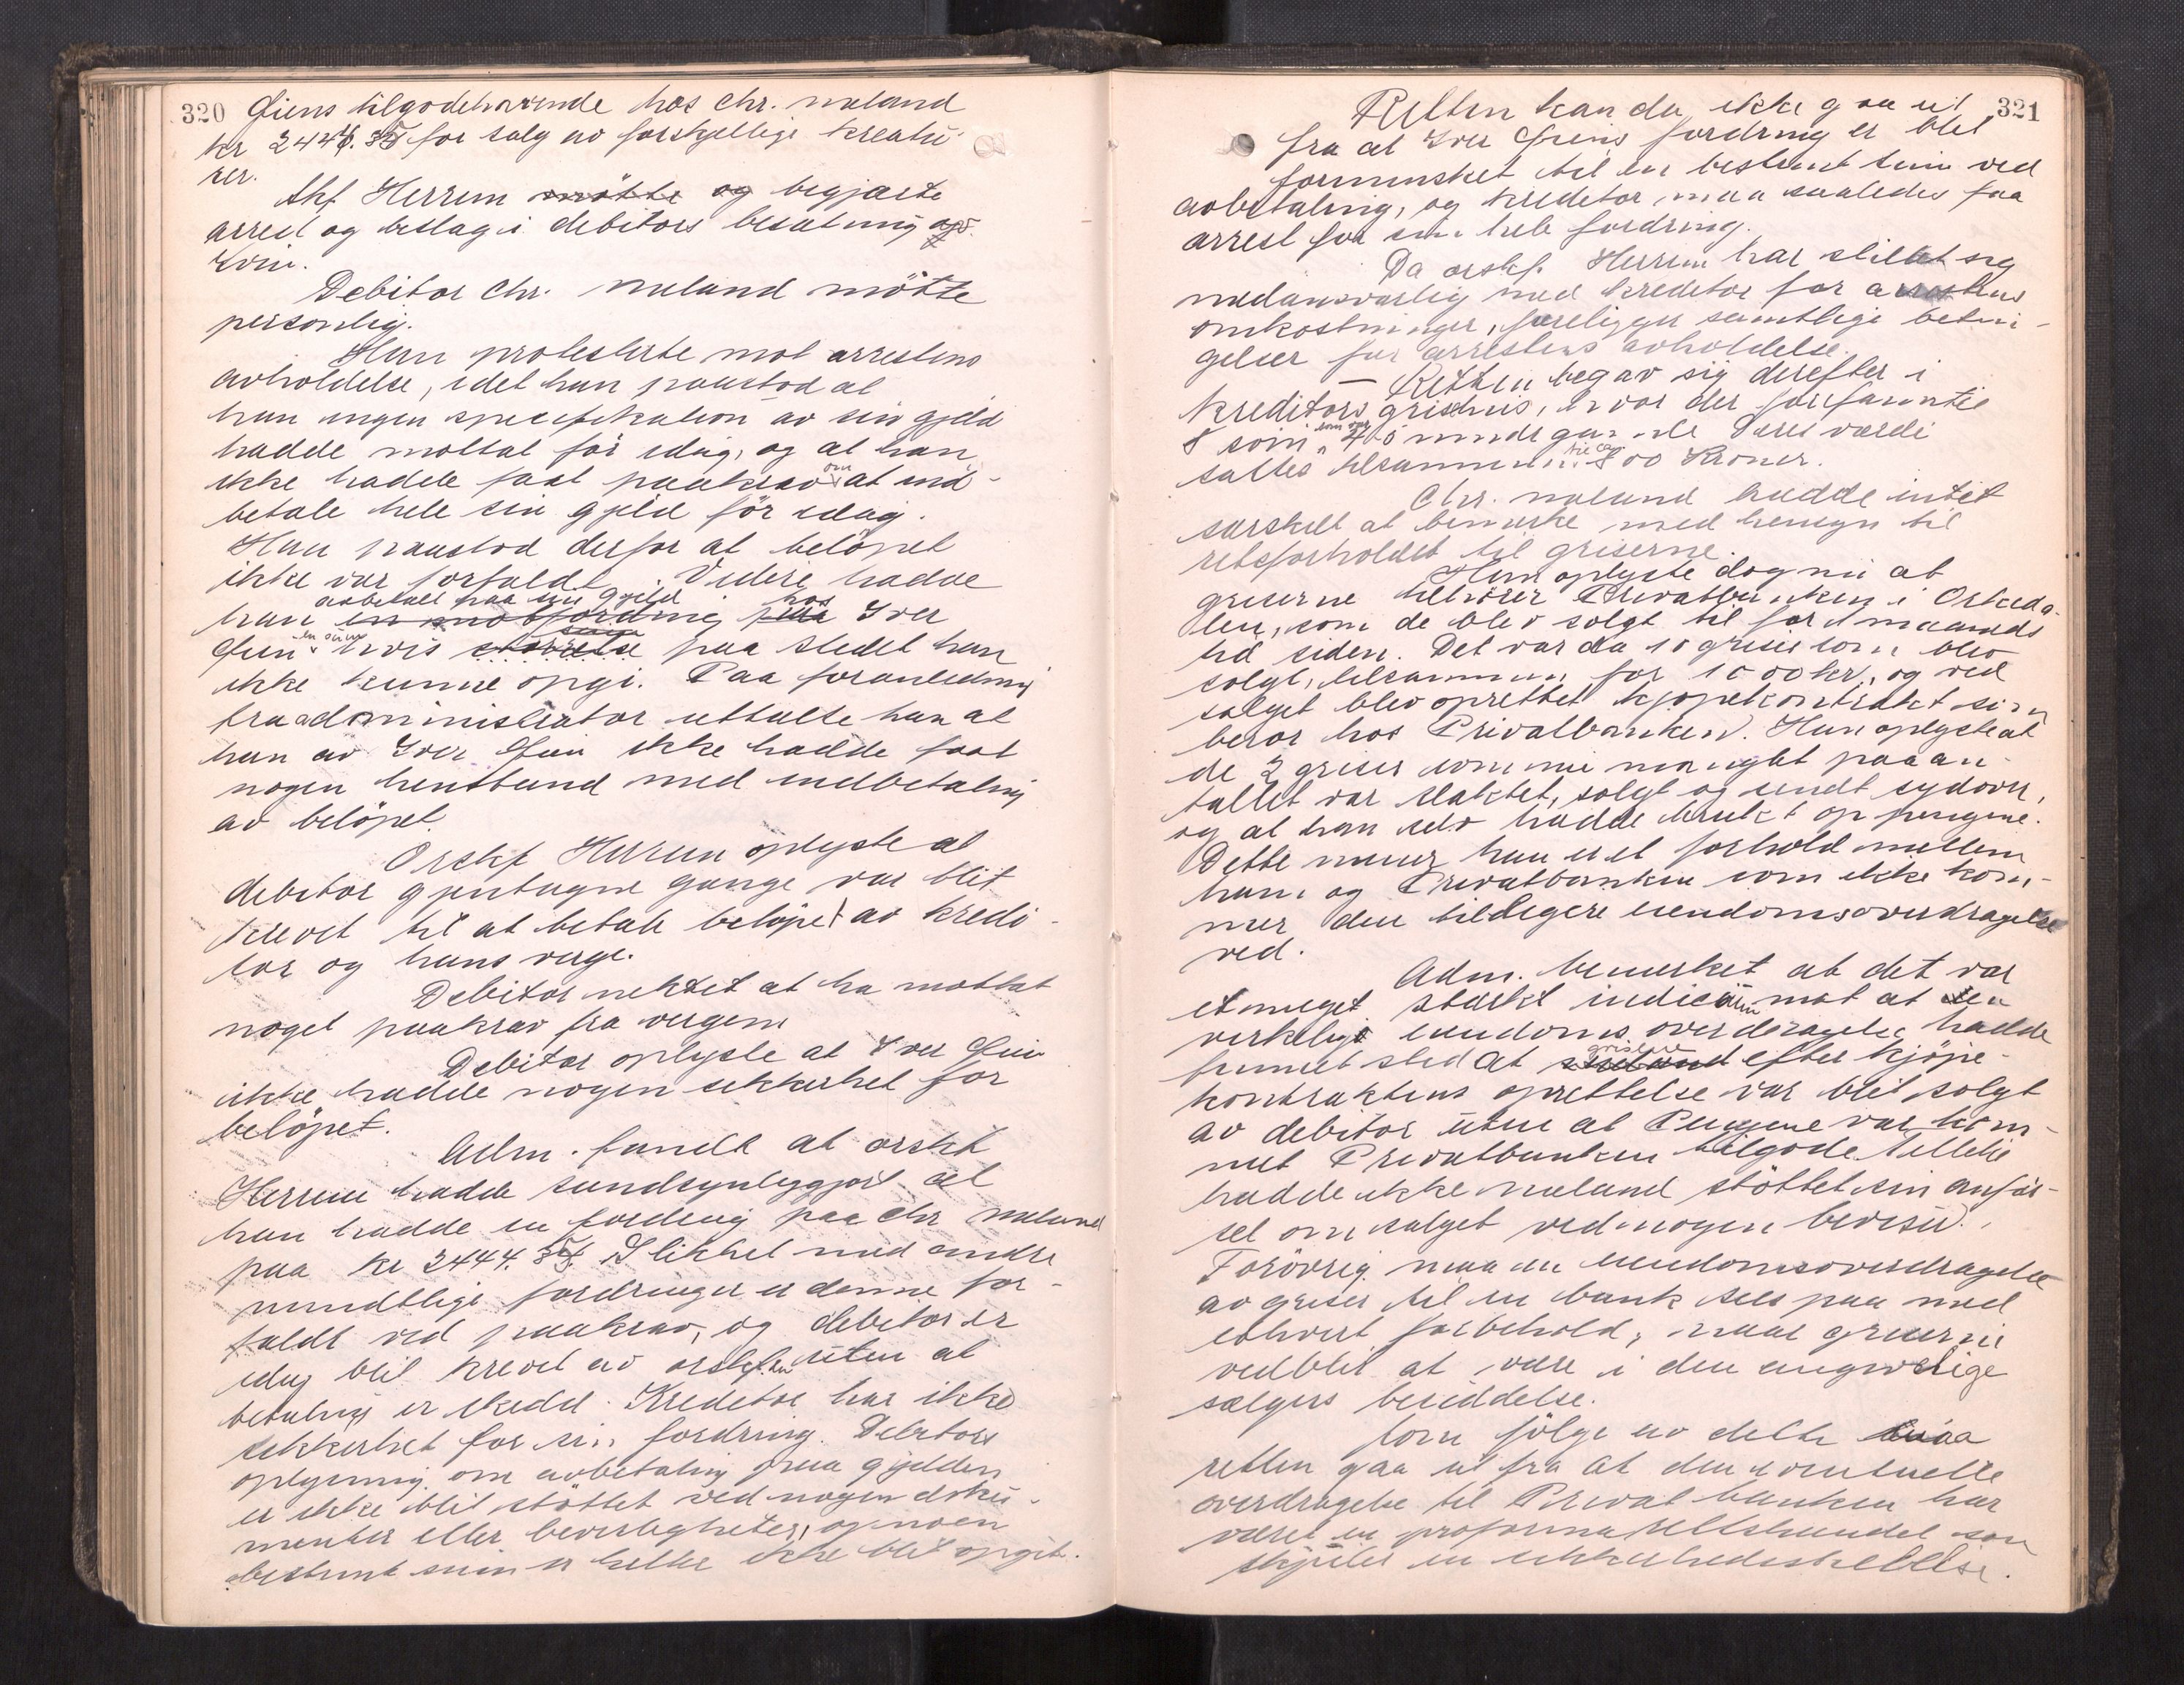 320 Giens tilgodehavende hos Chr. Maland
kr 2444.35 for salg av forskjellige kreatu-
rer.
Skf Herrem møtte og begjærte
arrest og beslag i debitors besætning av
svin.
Debitor Chr. Maland møtte
personlig.
Han protesterte mot arrestens
avholdelse, idet han paastod at
han ingen specifikation av sin gjeld
hadde mottat før idag, og at han
ikke hadde faat paakrav om at ind-
betale hele sin gjeld før idag.
Han paastod derfor at beløpet
ikke var forfaldt. Videre hadde
avbetalt paa sin gjeld hos
han en motfordring paa Iver
Gien en sum hvis størrelse paa stedet han
ikke kunne opgi. Paa foranledning
fra administrator uttalte han at
han av Iver Gien ikke hadde faat
nogen henstand med indbetaling
av beløpet.
Orskf Herrem oplyste at
debitor gjentagne gange var blit
krevet til at betale beløpet av kredi-
tor og hans verge.
Debitor nektet at ha mottat
noget paakrav fra vergen
Debitor oplyste at Iver Gien
ikke hadde nogen sikkerhet for
beløpet.
Adm. fandt at orskf
Herrem hadde sandsynliggjort at
han hadde en fordring paa Chr Maland
paa kr 2444.35. I likhet med andre
mundtlige fordringer er denne for-
faldt ved paakrav, og debitor er
idag blit krevet av orskf. uten at
betaling er skedd. Kreditor har ikke
sikkerhet for sin fordring. Debitors
oplysning om avbetaling paa gjelden
er ikke blit støttet ved nogen doku-
menter eller bevisligheter, og noen
bestemt sum er heller ikke blit opgit.
321
Retten kan da ikke gaa ut
fra at Iver Giens fordring er blet
forminsket til en bestemt sum ved
avbetaling, og kreditor maa saaledes faa
arrest for sin hele fordring.
Da orskf. Herrem har stillet sig
medansvarlig med kreditor for arrestens
omkostninger, foreligger samtlige betin-
gelser for arrestens avholdelse.
— Retten begav sig derefter i
kreditors grisehus, hvor der forefantes
8 svin som var 4-5 mndr gamle Deres værdi
sattes tilsammen til ca 800 Kroner.
Chr. Maland hadde intet
særskilt at bemerke med hensyn til
retsforholdet til griserne.
Han oplyste dog nu at
griserne tilhører Privatbanken i Orkeda-
len, som de blev solgt til for 1 maaneds
tid siden. Det var da 10 griser som blev
solgt, tilsammen for 1000 kr, og ved
salget blev oprettet kjøpekontrakt som
beror hos Privatbanken. Han oplyste at
de 2 griser som nu manglet paa an-
tallet var slaktet, solgt og sendt sydover,
og at han selv hadde brukt op pengene.
Dette mener han er et forhold mellem
ham og Privatbanken som ikke kom-
mer den tidligere eiendomsoverdragelse
ved.
Adm. bemerket at det var
et meget sterkt indicium mot at en
virkelig eiendomsoverdragelse hadde
funnet sted at grisene efter kjøpe-
kontraktens oprettelse var blit solgt
av debitor uten at Pengene var kom-
met Privatbanken tilgode Tillike
hadde ikke Maland støttet sin anfør-
sel om salget ved nogen beviser.
Forøvrig maa en eiendomsoverdragelse
av griser til en bank sees paa med
ethvert forbehold, naar griserne
vedblir at være i den angivelige
sælgers besiddelse.
Som følge av dette maa
retten gaa ut fra at den eventuelle
overdragelse til Privatbanken har
været en proforma retshandel som
skjuler en sikkerhedsstillelse.